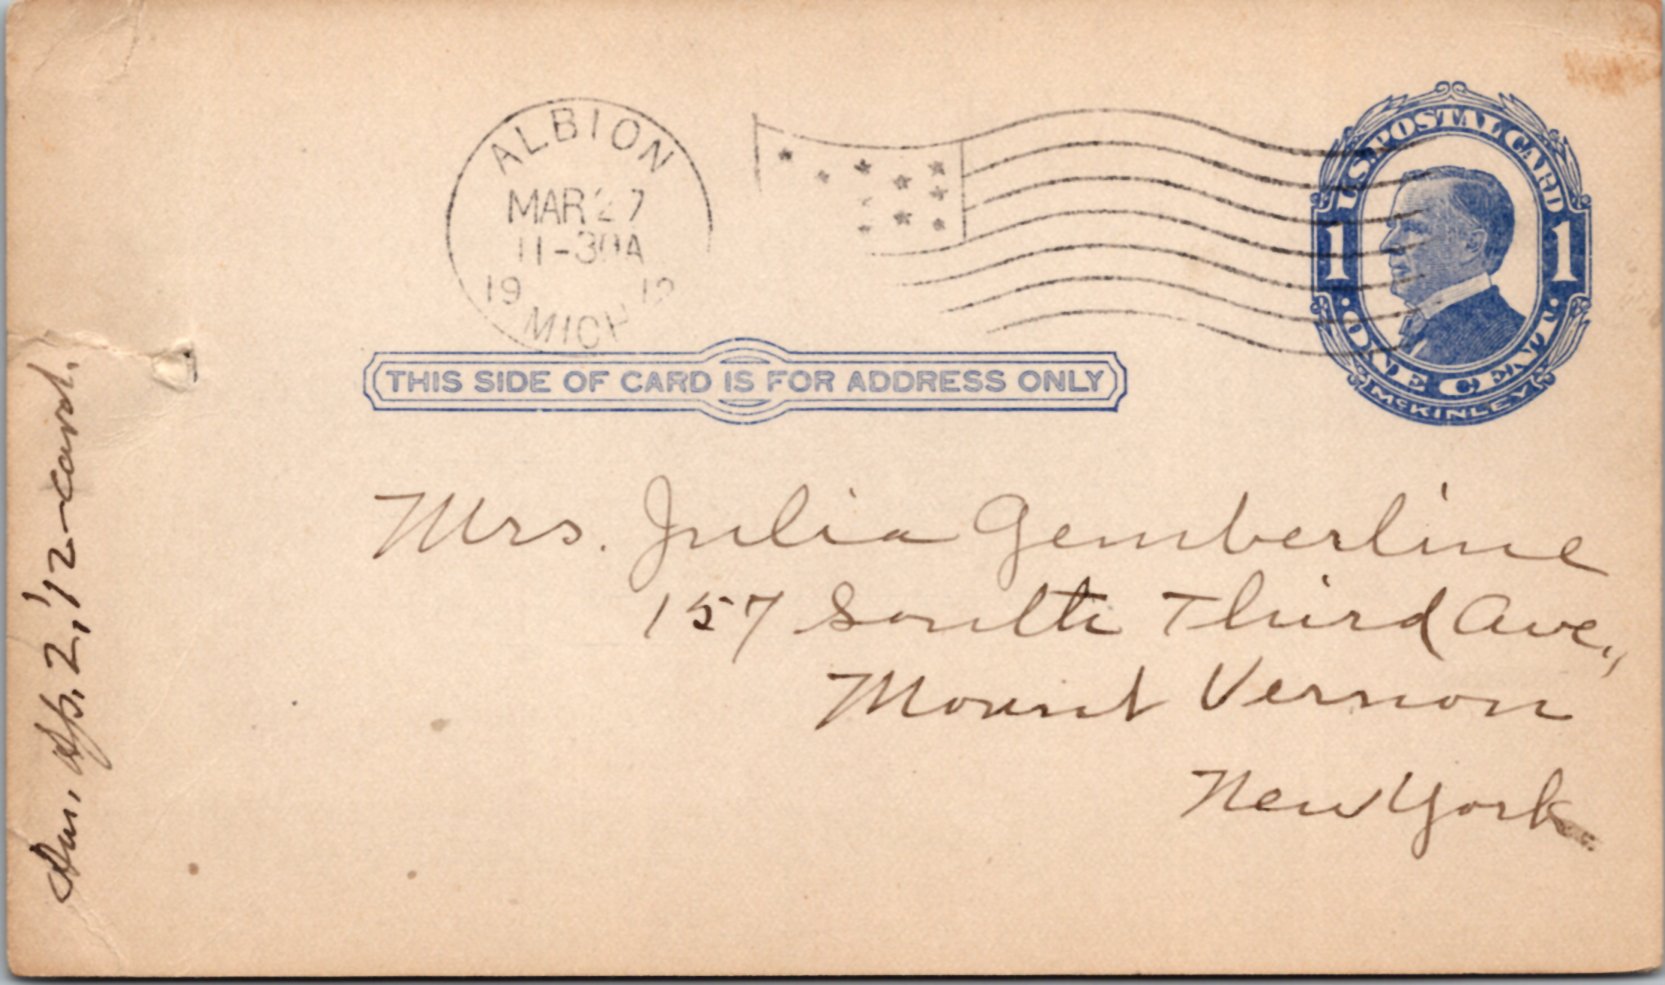 ALBION
MAR 27
11-30A
19 12
MICH
U.S. POSTAL CARD
1 1
· ONE CENT ·
McKINLEY
THIS SIDE OF CARD IS FOR ADDRESS ONLY
Mrs. Julia Gemberline
157 South Third Ave.,
Mount Vernon
New York
Ans. Ap. 2, '12-card.